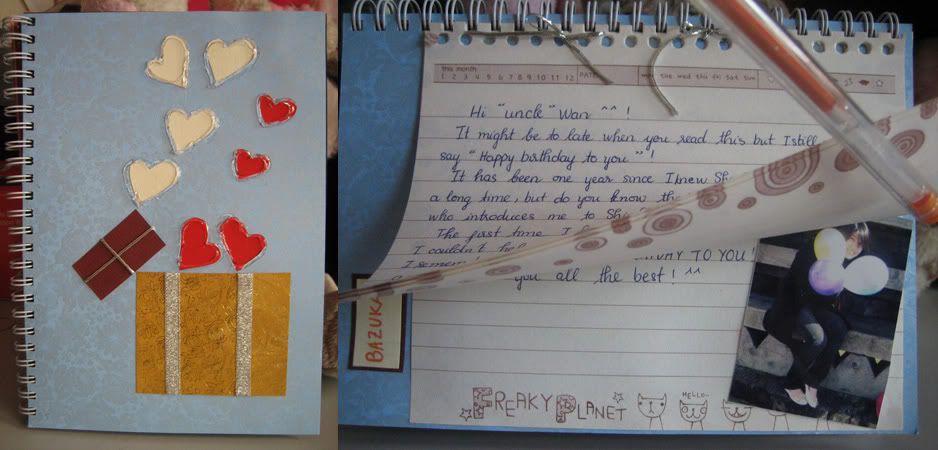 this month
1 2 3 4 5 6 7 8 9 10 11 12 DATE mon tue wed thu fri sat sun
Hi "uncle" Wan ^^ !
It might be to late when you read this but I still
say "Happy birthday to you" !
It has been one year since I knew
a long time, but do you know
who introduces me to
The first time I
I couldn't
TO YOU!
you all the best! ^^
BAZUKA
FREAKY PLANET
HELLO~